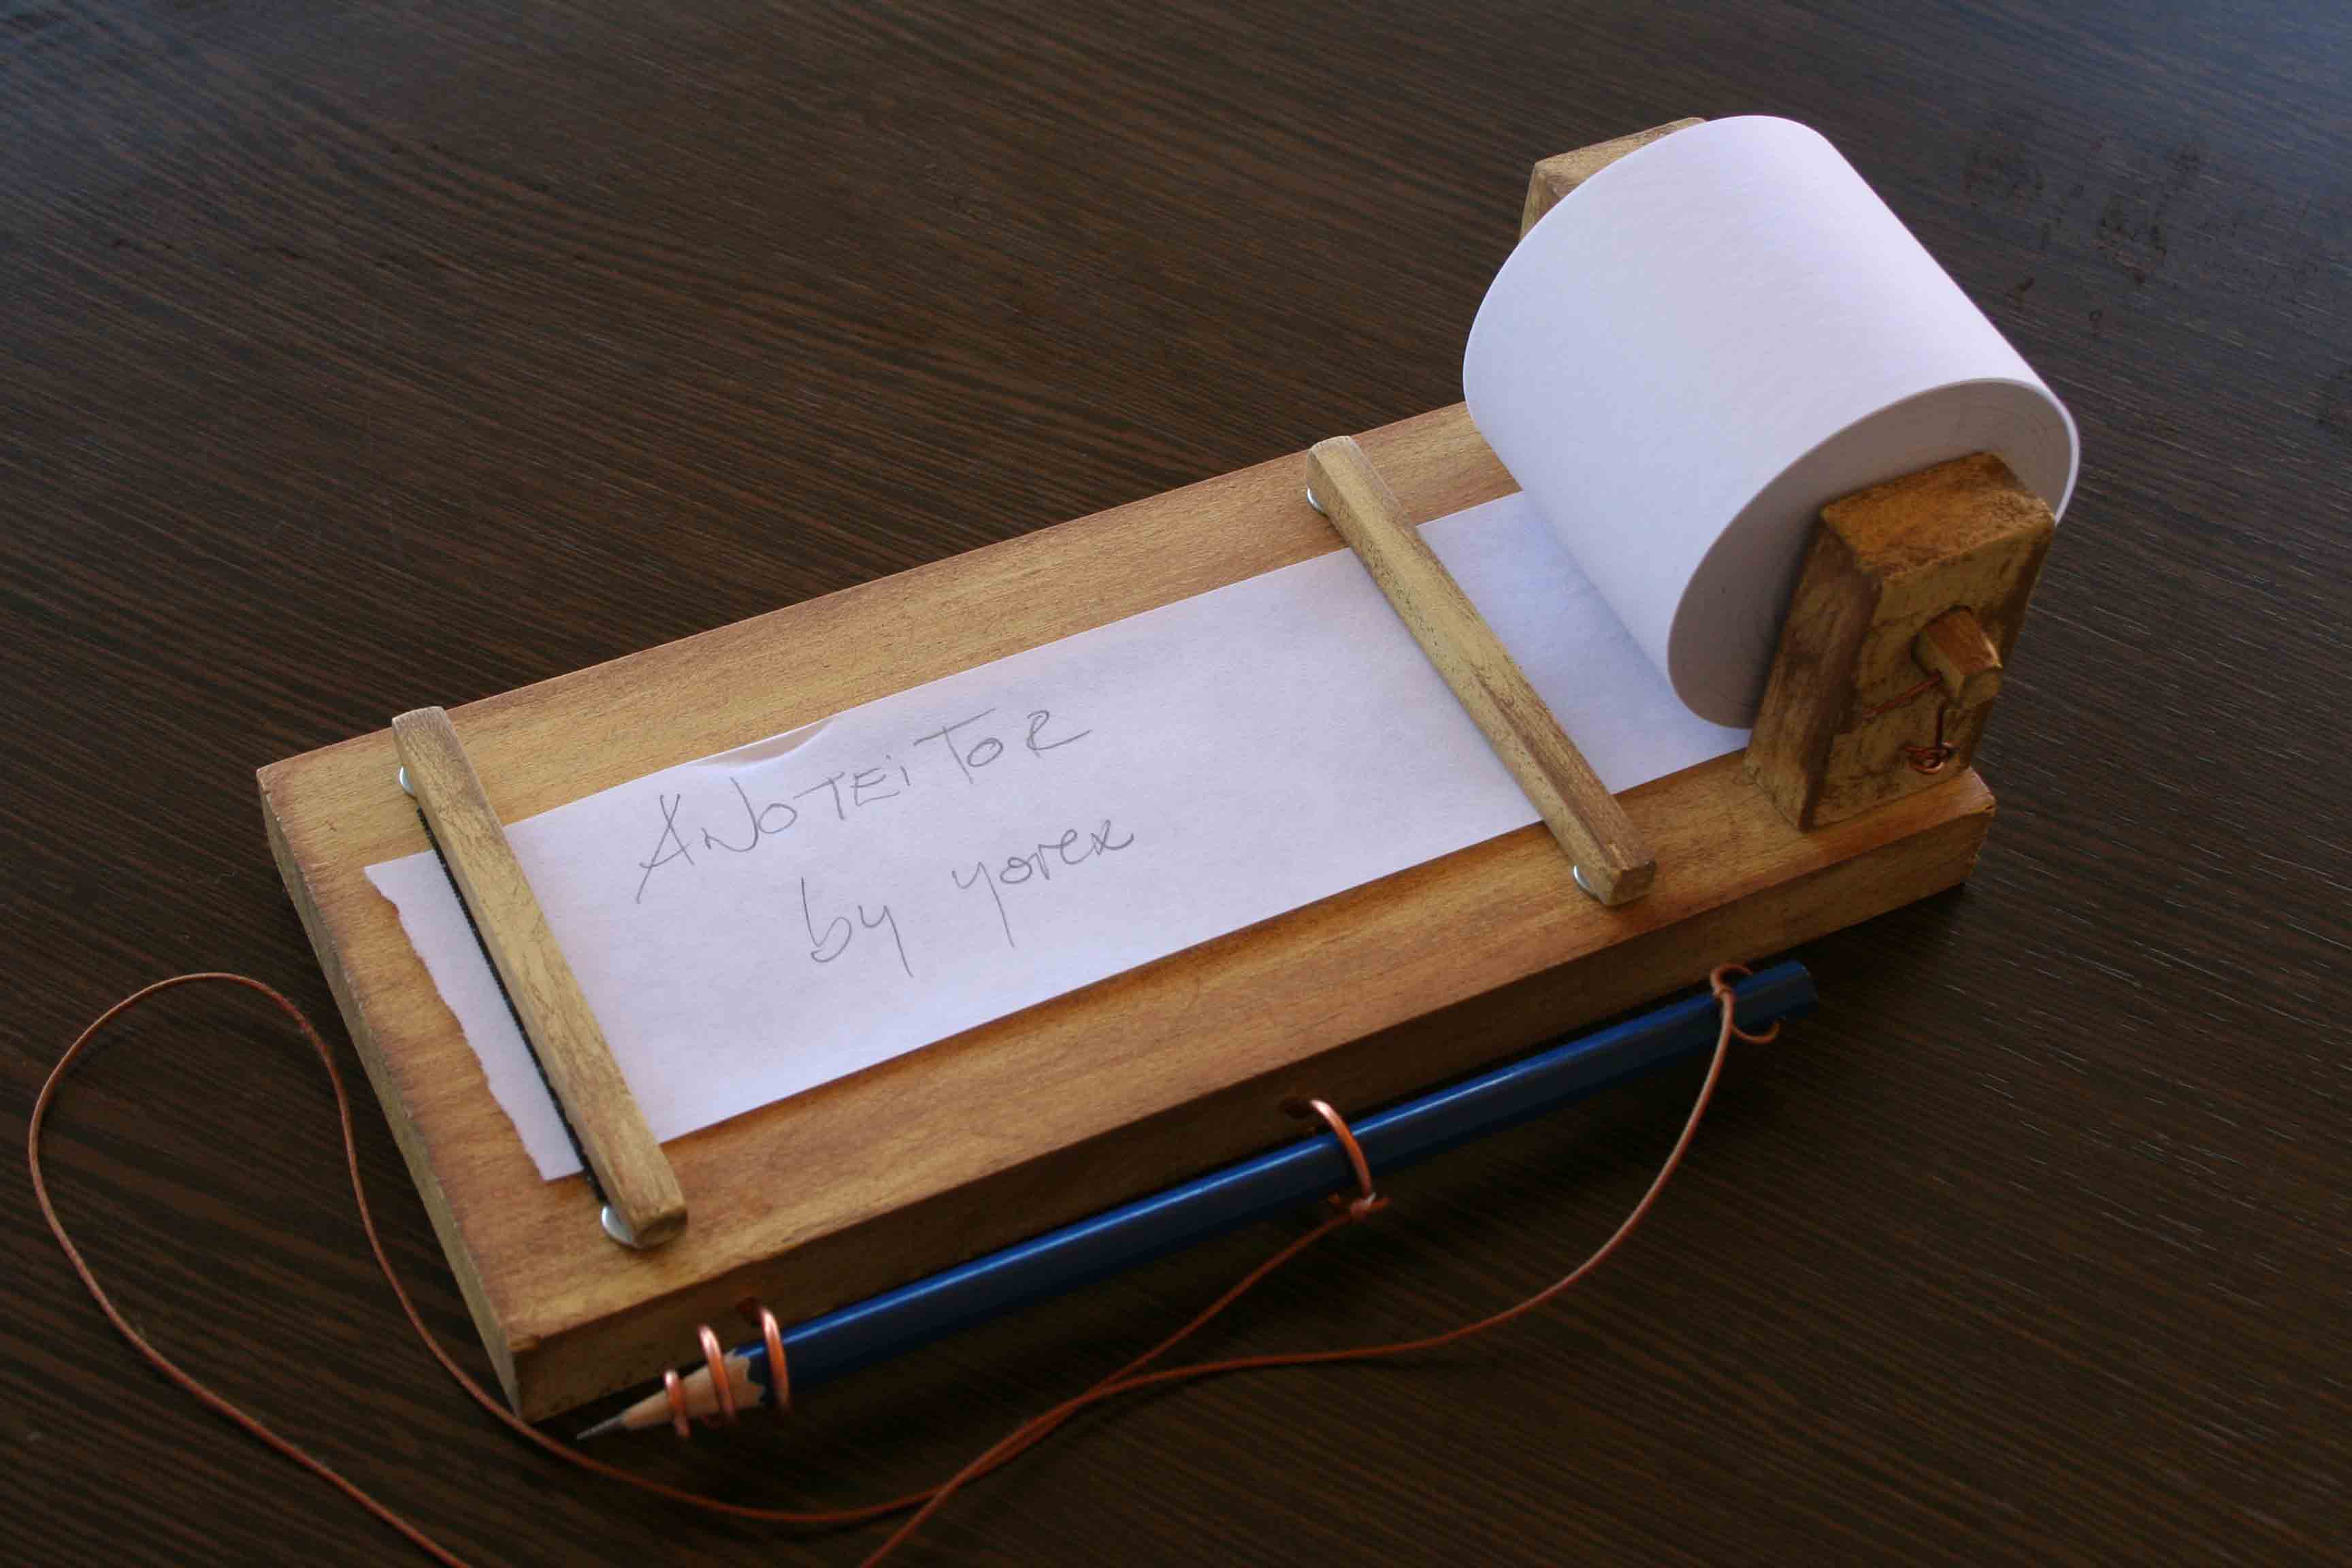 ANOTEiTOR
by yorex